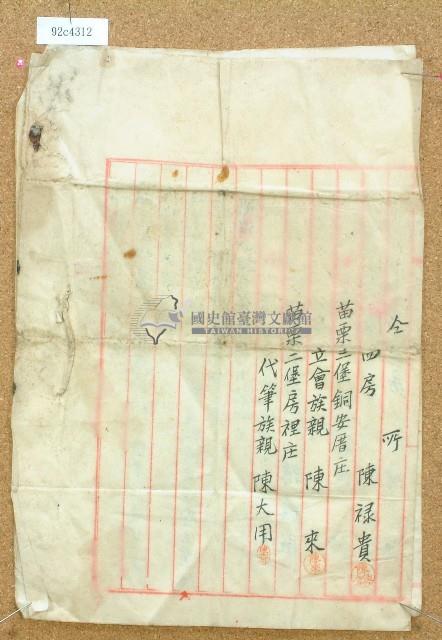 92c4312
仝 所
四房 陳禄貴
苗栗二堡銅安厝庄
立會族親 陳來
苗栗二堡房裡庄
代筆族親 陳大用
國史館臺灣文獻館
TAIWAN HISTORICA